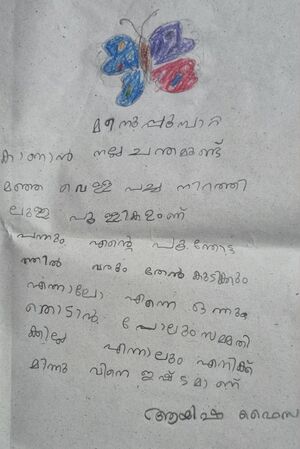 മിന്നുപ്പൂമ്പാറ്റ
കാണാൻ നല്ല ചന്തമുണ്ട്
മഞ്ഞ വെള്ള പച്ച നിറത്തി
ലുള്ള പുള്ളികളുണ്ട്
എന്നും എന്റെ പൂന്തോട്ട
ത്തിൽ വരും തേൻ കുടിക്കും
എന്നാലോ എന്നെ ഒന്നും
തൊടാൻ പോലും സമ്മതി
ക്കില്ല എന്നാലും എനിക്ക്
മിന്നു വിനെ ഇഷ്ടമാണ്
ആയിഷ ഫൈസ